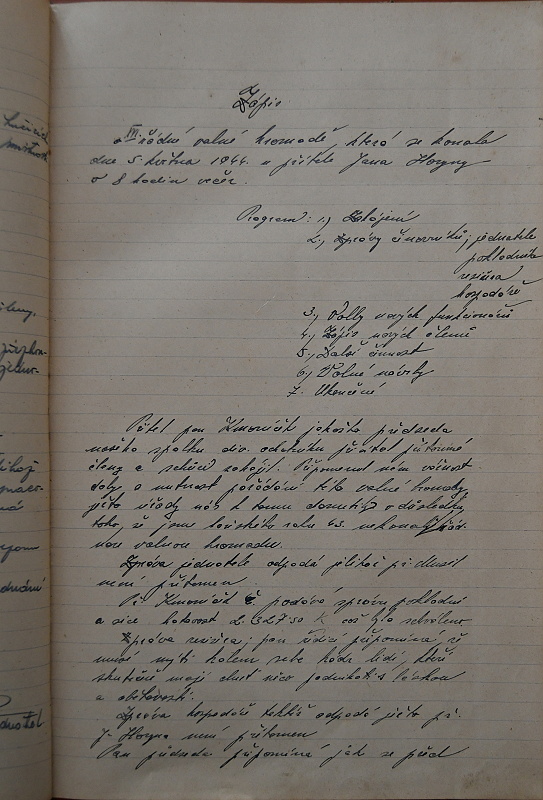 Zápis
o III. řádné valné hromadě, která se konala
dne 5 května 1944. u přítele Jana Horyny
o 8 hodin večer.
Program: 1.) Zahájení
2.) Zprávy činovníků; jednatele
pokladníka
revisora
hospodáře
3.) Volby nových funkcionářů
4.) Zápis nových členů
5.) Další činnost
6.) Volné návrhy
7. Ukončení
Přítel pan Kmoníček jakožto předseda
našeho spolku div. ochotníků přivítal přítomné
členy a schůzi zahájil. Připomenul nám vážnost
doby a nutnost pořádání této valné hromady,
ježto úřady nás k tomu donutily v důsledku
toho, že jsme loňského roku 43. nekonali řád-
nou valnou hromadu.
Zpráva jednatele odpadá jelikož př.
není přítomen.
Př. Kmoníček podává zprávu pokladní
a sice hotovost 2.327.50 K což bylo schváleno.
Zpráva revisora; pan připomíná, že
musí míti kolem sebe hodn. lidí, kteří
skutečně mají chuť něco podnikati s láskou
a obětavostí.
Zpráva hospodáře taktéž odpadá ježto př.
J. Horyna není přítomen
Pan předseda připomíná jak se před